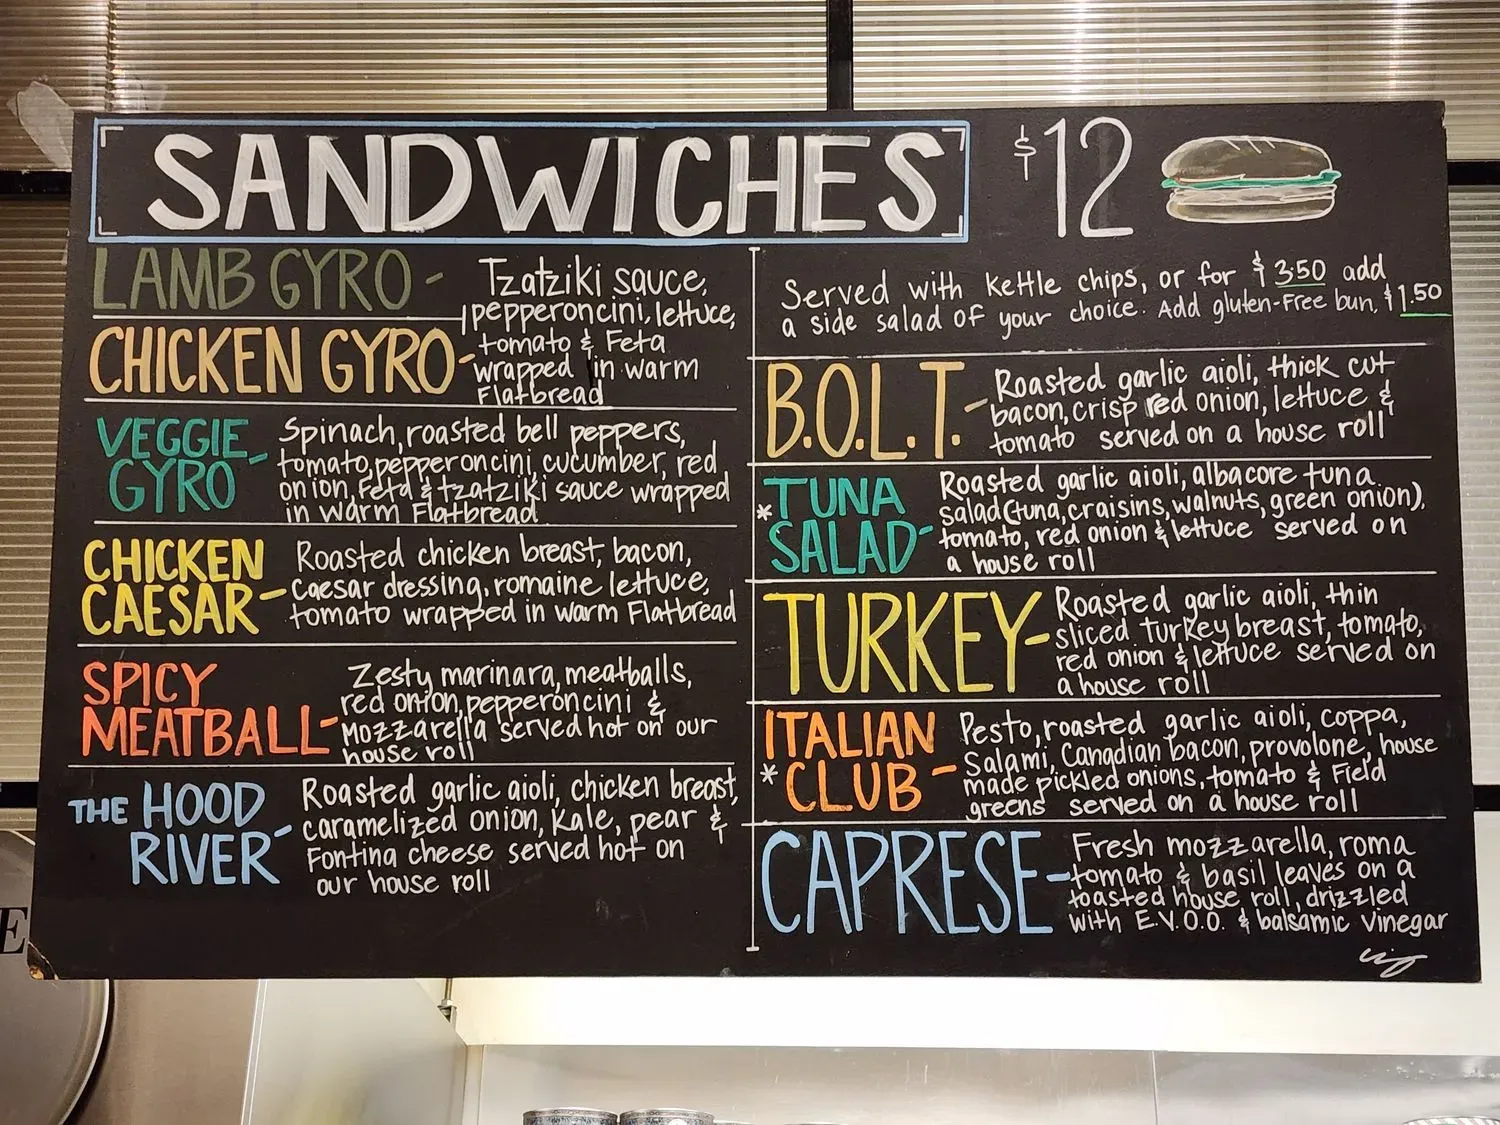 SANDWICHES $12
LAMB GYRO -
CHICKEN GYRO -
Tzatziki sauce,
pepperoncini, lettuce,
tomato & Feta
wrapped in warm
Flatbread
VEGGIE
GYRO -
Spinach, roasted bell peppers,
tomato, pepperoncini, cucumber, red
onion, Feta & tzatziki sauce wrapped
in warm Flatbread
CHICKEN
CAESAR -
Roasted chicken breast, bacon,
Caesar dressing, romaine lettuce,
tomato wrapped in warm Flatbread
SPICY
MEATBALL -
Zesty marinara, meatballs,
red onion, pepperoncini &
Mozzarella served hot on our
house roll
THE HOOD
RIVER -
Roasted garlic aioli, chicken breast,
caramelized onion, kale, pear &
Fontina cheese served hot on
our house roll
Served with kettle chips, or for $3.50 add
a side salad of your choice. Add gluten-free bun, $1.50
B.O.L.T. -
Roasted garlic aioli, thick cut
bacon, crisp red onion, lettuce &
tomato served on a house roll
* TUNA
SALAD -
Roasted garlic aioli, albacore tuna
salad (tuna, craisins, walnuts, green onion),
tomato, red onion & lettuce served on
a house roll
TURKEY -
Roasted garlic aioli, thin
sliced turkey breast, tomato,
red onion & lettuce served on
a house roll
ITALIAN
* CLUB -
Pesto, roasted garlic aioli, coppa,
Salami, Canadian bacon, provolone, house
made pickled onions, tomato & Field
greens served on a house roll
CAPRESE -
Fresh mozzarella, roma
tomato & basil leaves on a
toasted house roll, drizzled
with E.V.O.O. & balsamic vinegar
E